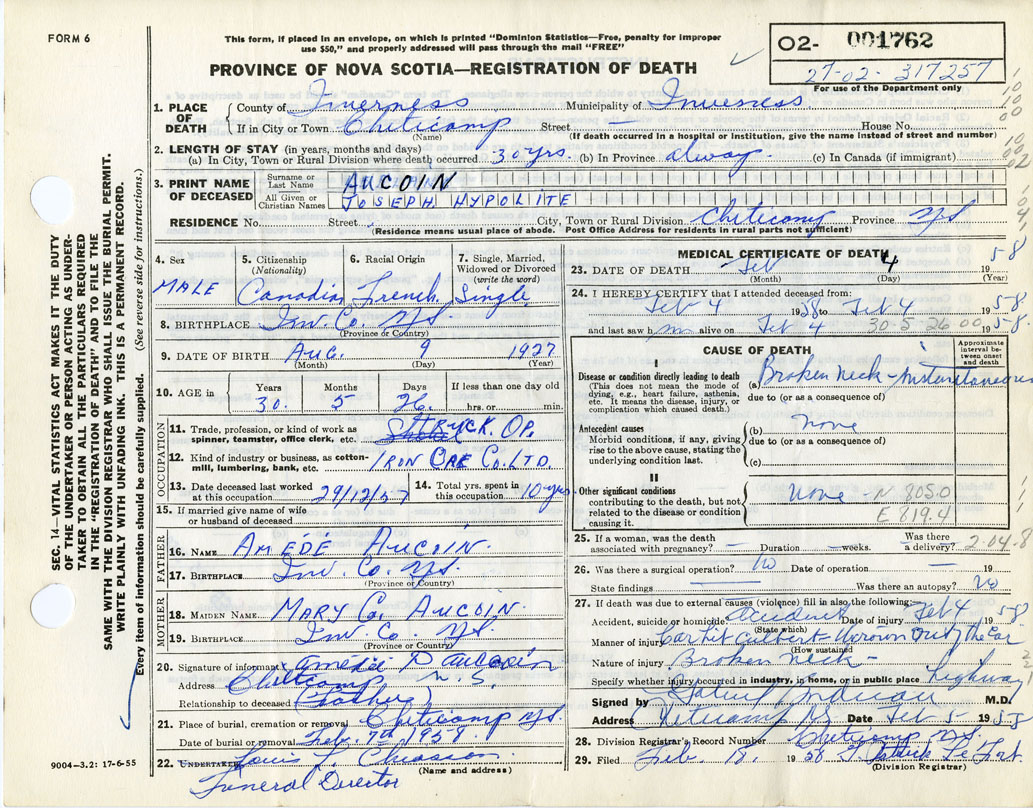 FORM 6
This form, if placed in an envelope, on which is printed "Dominion Statistics—Free, penalty for improper
use $50," and properly addressed will pass through the mail "FREE"
PROVINCE OF NOVA SCOTIA—REGISTRATION OF DEATH
O2- 001762
27-02-317257
For use of the Department only
1. PLACE OF DEATH County of Inverness Municipality of Inverness
If in City or Town Cheticamp Street House No.
(Name) (If death occurred in a hospital or institution, give the name instead of street and number)
2. LENGTH OF STAY (in years, months and days)
(a) In City, Town or Rural Division where death occurred 30 yrs. (b) In Province always (c) In Canada (if immigrant)
3. PRINT NAME OF DECEASED Surname or Last Name AUCOIN
All Given or Christian Names JOSEPH HYPOLITE
RESIDENCE No. Street City, Town or Rural Division Cheticamp Province N.S.
(Residence means usual place of abode. Post Office Address for residents in rural parts not sufficient)
4. Sex MALE
5. Citizenship (Nationality) Canadian
6. Racial Origin French
7. Single, Married, Widowed or Divorced (write the word) Single
8. BIRTHPLACE Inv. Co. N.S.
(Province or Country)
9. DATE OF BIRTH Aug. 9 1927
(Month) (Day) (Year)
10. AGE in Years Months Days If less than one day old
30. 5 26 hrs. or min.
OCCUPATION
11. Trade, profession, or kind of work as spinner, teamster, office clerk, etc. TRUCK OP.
12. Kind of industry or business, as cotton-mill, lumbering, bank, etc. IRON ORE CO. LTD.
13. Date deceased last worked at this occupation 29/12/57 14. Total yrs. spent in this occupation 10 yrs
15. If married give name of wife or husband of deceased
FATHER
16. NAME AMÉDÉ AUCOIN.
17. BIRTHPLACE Inv. Co. N.S.
(Province or Country)
MOTHER
18. MAIDEN NAME MARY C. AUCOIN.
19. BIRTHPLACE Inv. Co. N.S.
(Province or Country)
20. Signature of informant Amédée P Aucoin
Address Cheticamp N.S.
Relationship to deceased (Father)
21. Place of burial, cremation or removal Cheticamp N.S.
Date of burial or removal Feb. 7th 1958.
22. UNDERTAKER Louis J. Chiasson
(Name and address)
Funeral Director
9004—3.2: 17-6-55
MEDICAL CERTIFICATE OF DEATH
23. DATE OF DEATH Feb 4 1958
(Month) (Day) (Year)
24. I HEREBY CERTIFY that I attended deceased from:
Feb 4 1958 to Feb 4 1958
and last saw h m alive on Feb 4 30-5-26 00 1958
CAUSE OF DEATH
Approximate interval between onset and death
I
Disease or condition directly leading to death
(This does not mean the mode of dying, e.g., heart failure, asthenia, etc. It means the disease, injury, or complication which caused death.)
(a) Broken Neck - Instantaneous
due to (or as a consequence of)
Antecedent causes
Morbid conditions, if any, giving rise to the above cause, stating the underlying condition last.
(b) None
due to (or as a consequence of)
(c)
II
Other significant conditions
contributing to the death, but not related to the disease or condition causing it.
None - N 805.0
E 819.4
25. If a woman, was the death associated with pregnancy? — Duration — weeks. Was there a delivery? 2-04-8
26. Was there a surgical operation? No Date of operation — 19
State findings Was there an autopsy? No
27. If death was due to external causes (violence) fill in also the following:
Accident, suicide or homicide Accident Date of injury Feb 4 1958
(State which)
Manner of injury Car hit culvert thrown out of the car
(How sustained
Nature of injury Broken neck -
Specify whether injury occurred in industry, in home, or in public place highway
Signed by M.D.
Address Cheticamp N.S. Date Feb 5 1958
28. Division Registrar's Record Number Cheticamp N.S.
29. Filed Feb. 1958
(Division Registrar)
SEC. 14—VITAL STATISTICS ACT MAKES IT THE DUTY
OF THE UNDERTAKER OR PERSON ACTING AS UNDER-
TAKER TO OBTAIN ALL THE PARTICULARS REQUIRED
IN THE "REGISTRATION OF DEATH" AND TO FILE THE
SAME WITH THE DIVISION REGISTRAR WHO SHALL ISSUE THE BURIAL PERMIT.
WRITE PLAINLY WITH UNFADING INK. THIS IS A PERMANENT RECORD.
Every item of information should be carefully supplied. (See reverse side for instructions.)